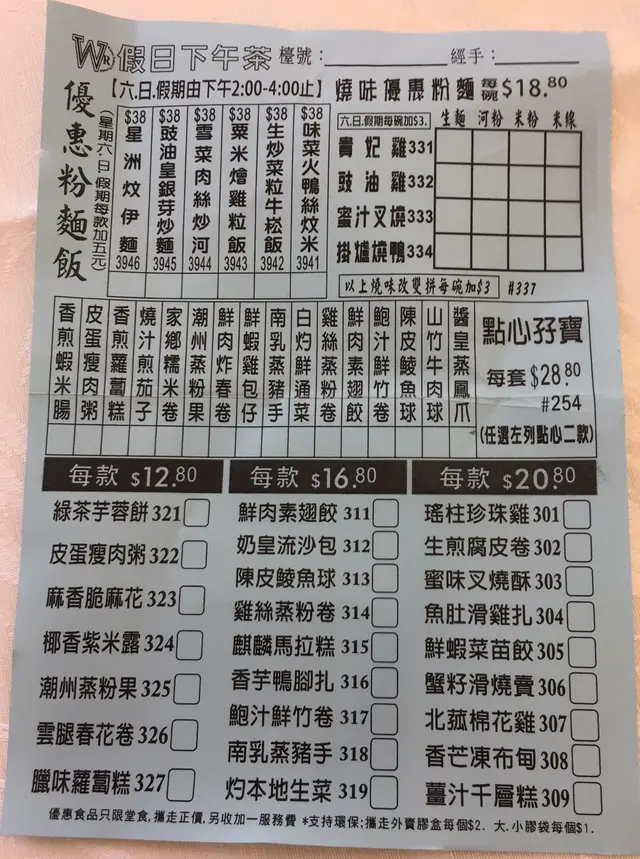 WR 假日下午茶 檯號: 經手:
【六.日.假期由下午2:00-4:00止】
優惠粉麵飯
(星期六.日 假期每款加五元)
$38 星洲炆伊麵 3946
$38 豉油皇銀芽炒麵 3945
$38 雪菜肉絲炒河 3944
$38 粟米燴雞粒飯 3943
$38 生炒菜粒牛崧飯 3942
$38 味菜火鴨絲炆米 3941
燒味優惠粉麵 每碗 $18.80
六.日.假期每碗加$3. 生麵 河粉 米粉 米線
貴妃雞 331
豉油雞 332
蜜汁叉燒 333
掛爐燒鴨 334
以上燒味改雙拼每碗加$3 #337
香煎蝦米腸
皮蛋瘦肉粥
香煎蘿蔔糕
燒汁煎茄子
家鄉糯米卷
潮州蒸粉果
鮮肉炸春卷
鮮蝦雞包仔
南乳蒸豬手
白灼鮮通菜
雞絲蒸粉卷
鮮肉素翅餃
鮑汁鮮竹卷
陳皮鯪魚球
山竹牛肉球
醬皇蒸鳳爪
點心孖寶
每套 $28.80
#254
(任選左列點心二款)
每款 $12.80
綠茶芋蓉餅 321
皮蛋瘦肉粥 322
麻香脆麻花 323
椰香紫米露 324
潮州蒸粉果 325
雲腿春花卷 326
臘味蘿蔔糕 327
每款 $16.80
鮮肉素翅餃 311
奶皇流沙包 312
陳皮鯪魚球 313
雞絲蒸粉卷 314
麒麟馬拉糕 315
香芋鴨腳扎 316
鮑汁鮮竹卷 317
南乳蒸豬手 318
灼本地生菜 319
每款 $20.80
瑤柱珍珠雞 301
生煎腐皮卷 302
蜜味叉燒酥 303
魚肚滑雞扎 304
鮮蝦菜苗餃 305
蟹籽滑燒賣 306
北菰棉花雞 307
香芒凍布甸 308
薑汁千層糕 309
優惠食品只限堂食,攜走正價,另收加一服務費 *支持環保;攜走外賣膠盒每個$2. 大.小膠袋每個$1.